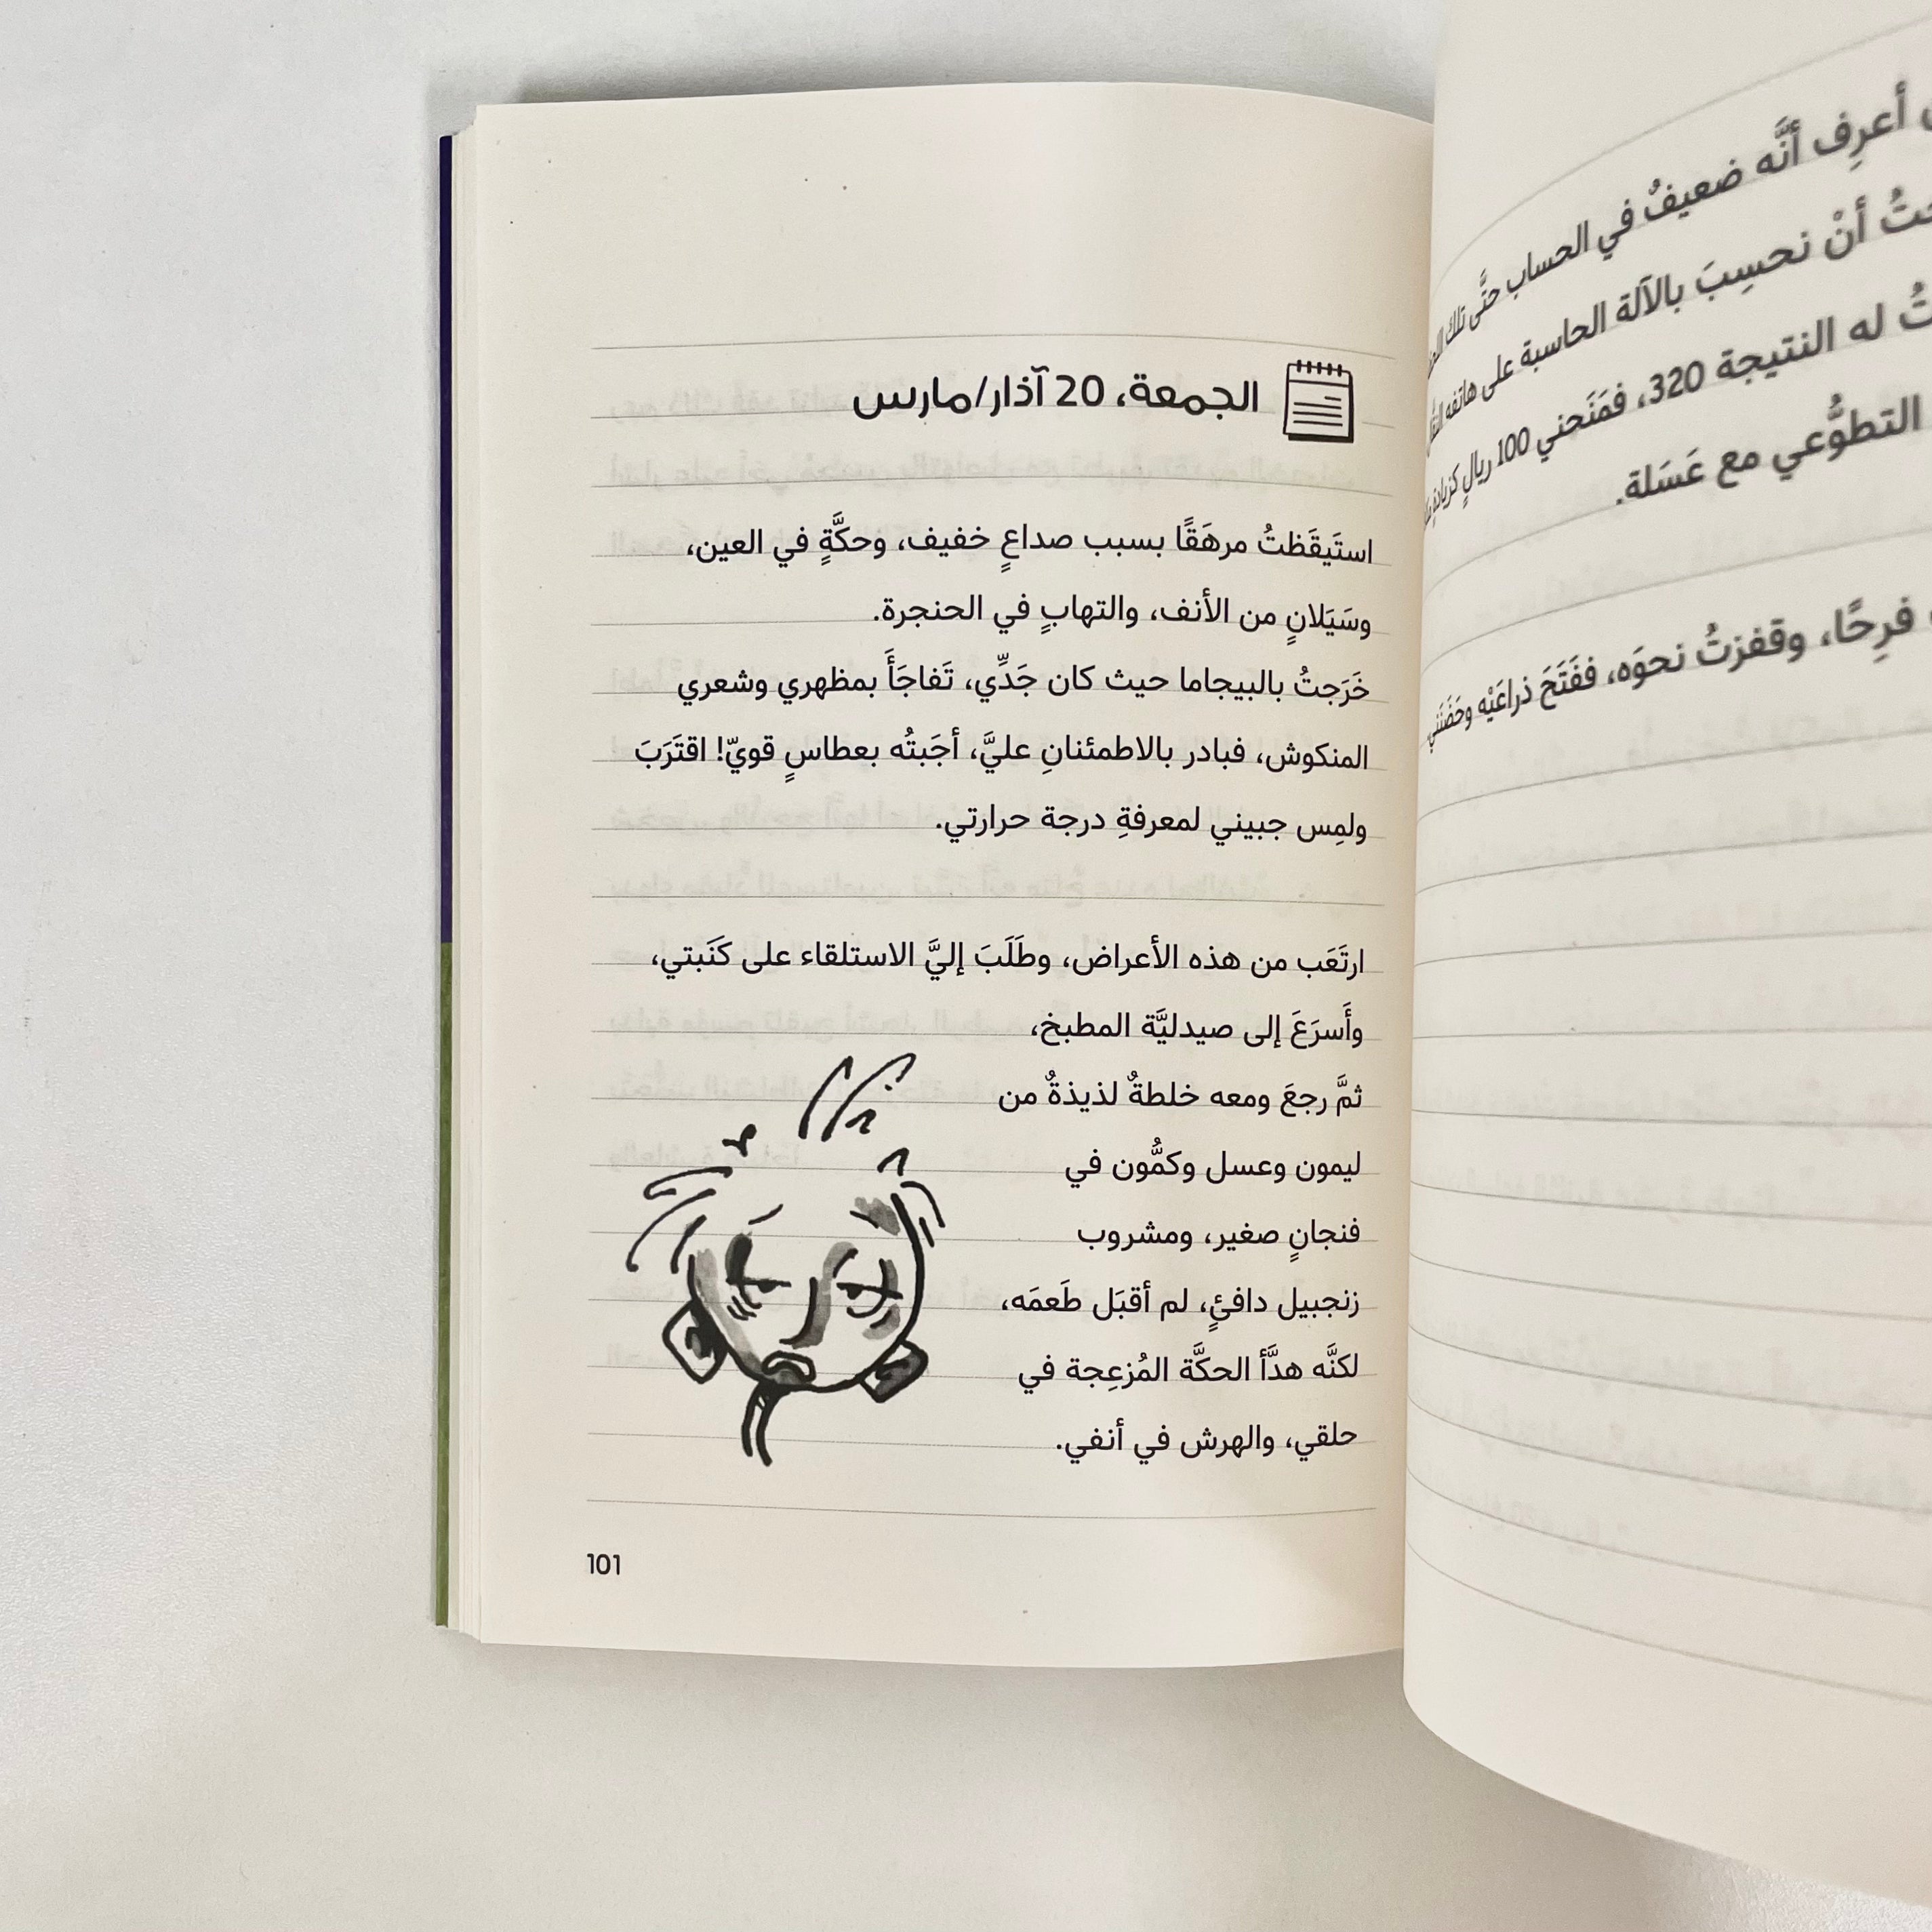 أعرِف أنَّه ضعيفٌ في الحساب حتَّى تلك
أنْ نحسِبَ بالآلة الحاسبة على هاتفه
له النتيجة 320، فمَنَحني 100 ريالٍ كزيادةٍ
التطوُّعي مع عَسَلة.
فرِحًا، وقفزتُ نحوَه، ففَتَحَ ذراعَيْه وحَضَنَني
الجمعة، 20 آذار/مارس
استَيقَظتُ مرهَقًا بسبب صداعٍ خفيف، وحكَّةٍ في العين،
وسَيَلانٍ من الأنف، والتهابٍ في الحنجرة.
خَرَجتُ بالبيجاما حيث كان جَدِّي، تَفاجَأَ بمظهري وشعري
المنكوش، فبادر بالاطمئنانِ عليَّ، أجَبتُه بعطاسٍ قويّ! اقتَرَبَ
ولمِس جبيني لمعرفةِ درجة حرارتي.
ارتَعَب من هذه الأعراض، وطَلَبَ إليَّ الاستلقاء على كَنَبتي،
وأَسرَعَ إلى صيدليَّة المطبخ،
ثمَّ رجعَ ومعه خلطةٌ لذيذةٌ من
ليمون وعسل وكمُّون في
فنجانٍ صغير، ومشروب
زنجبيل دافئٍ، لم أقبَل طَعمَه،
لكنَّه هدَّأ الحكَّة المُزعِجة في
حلقي، والهرش في أنفي.
101